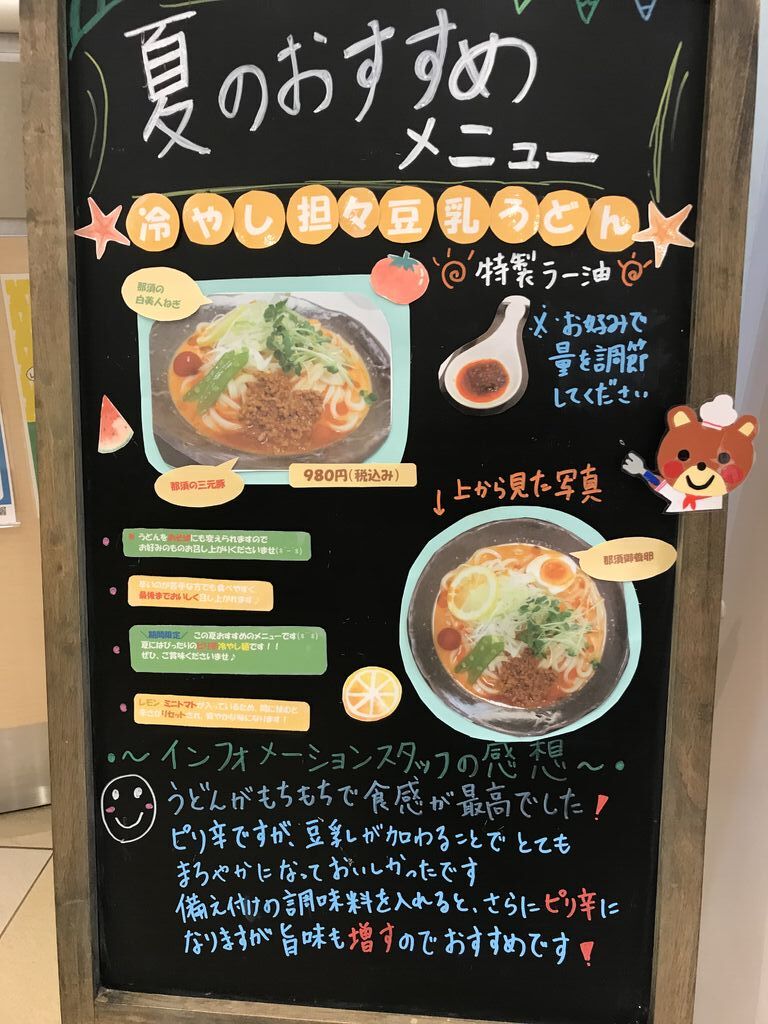 夏のおすすめ
メニュー
冷やし担々豆乳うどん
特製ラー油
※お好みで
量を調節
してください
那須の
白美人ねぎ
那須の三元豚
980円(税込み)
↓上から見た写真
那須御養卵
うどんをおそばにも変えられますので
お好みのものお召し上がりくださいませ
辛いのが苦手な方でも食べやすく
最後までおいしく召し上がれます♪
期間限定 この夏おすすめのメニューです
夏にはぴったりのピリ辛冷やし麺です！！
ぜひ、ご賞味くださいませ♪
レモン ミニトマトが入っているため、間に挟むと
辛さがリセットされ、爽やかな味になります！
・～インフォメーションスタッフの感想～・
うどんがもちもちで食感が最高でした！
ピリ辛ですが、豆乳が加わることでとても
まろやかになっておいしかったです
備え付けの調味料を入れると、さらにピリ辛に
なりますが旨味も増すのでおすすめです！